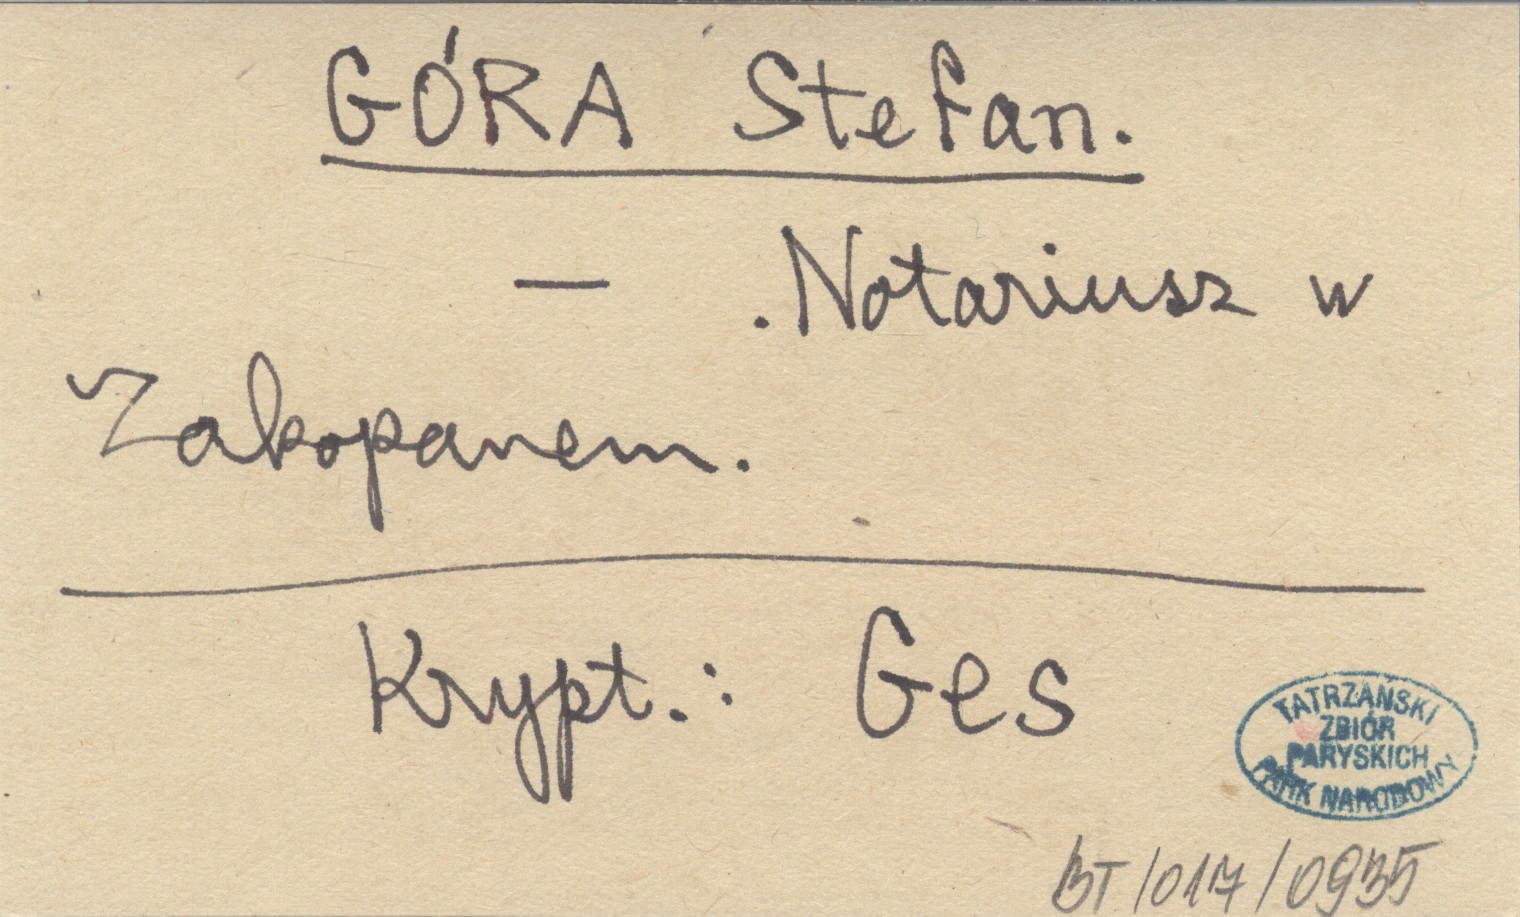 GÓRA Stefan.
— . Notariusz w
Zakopanem.
Krypt.: Ges
TATRZAŃSKI
ZBIÓR
PARYSKICH
PARK NARODOWY
BT/017/0935